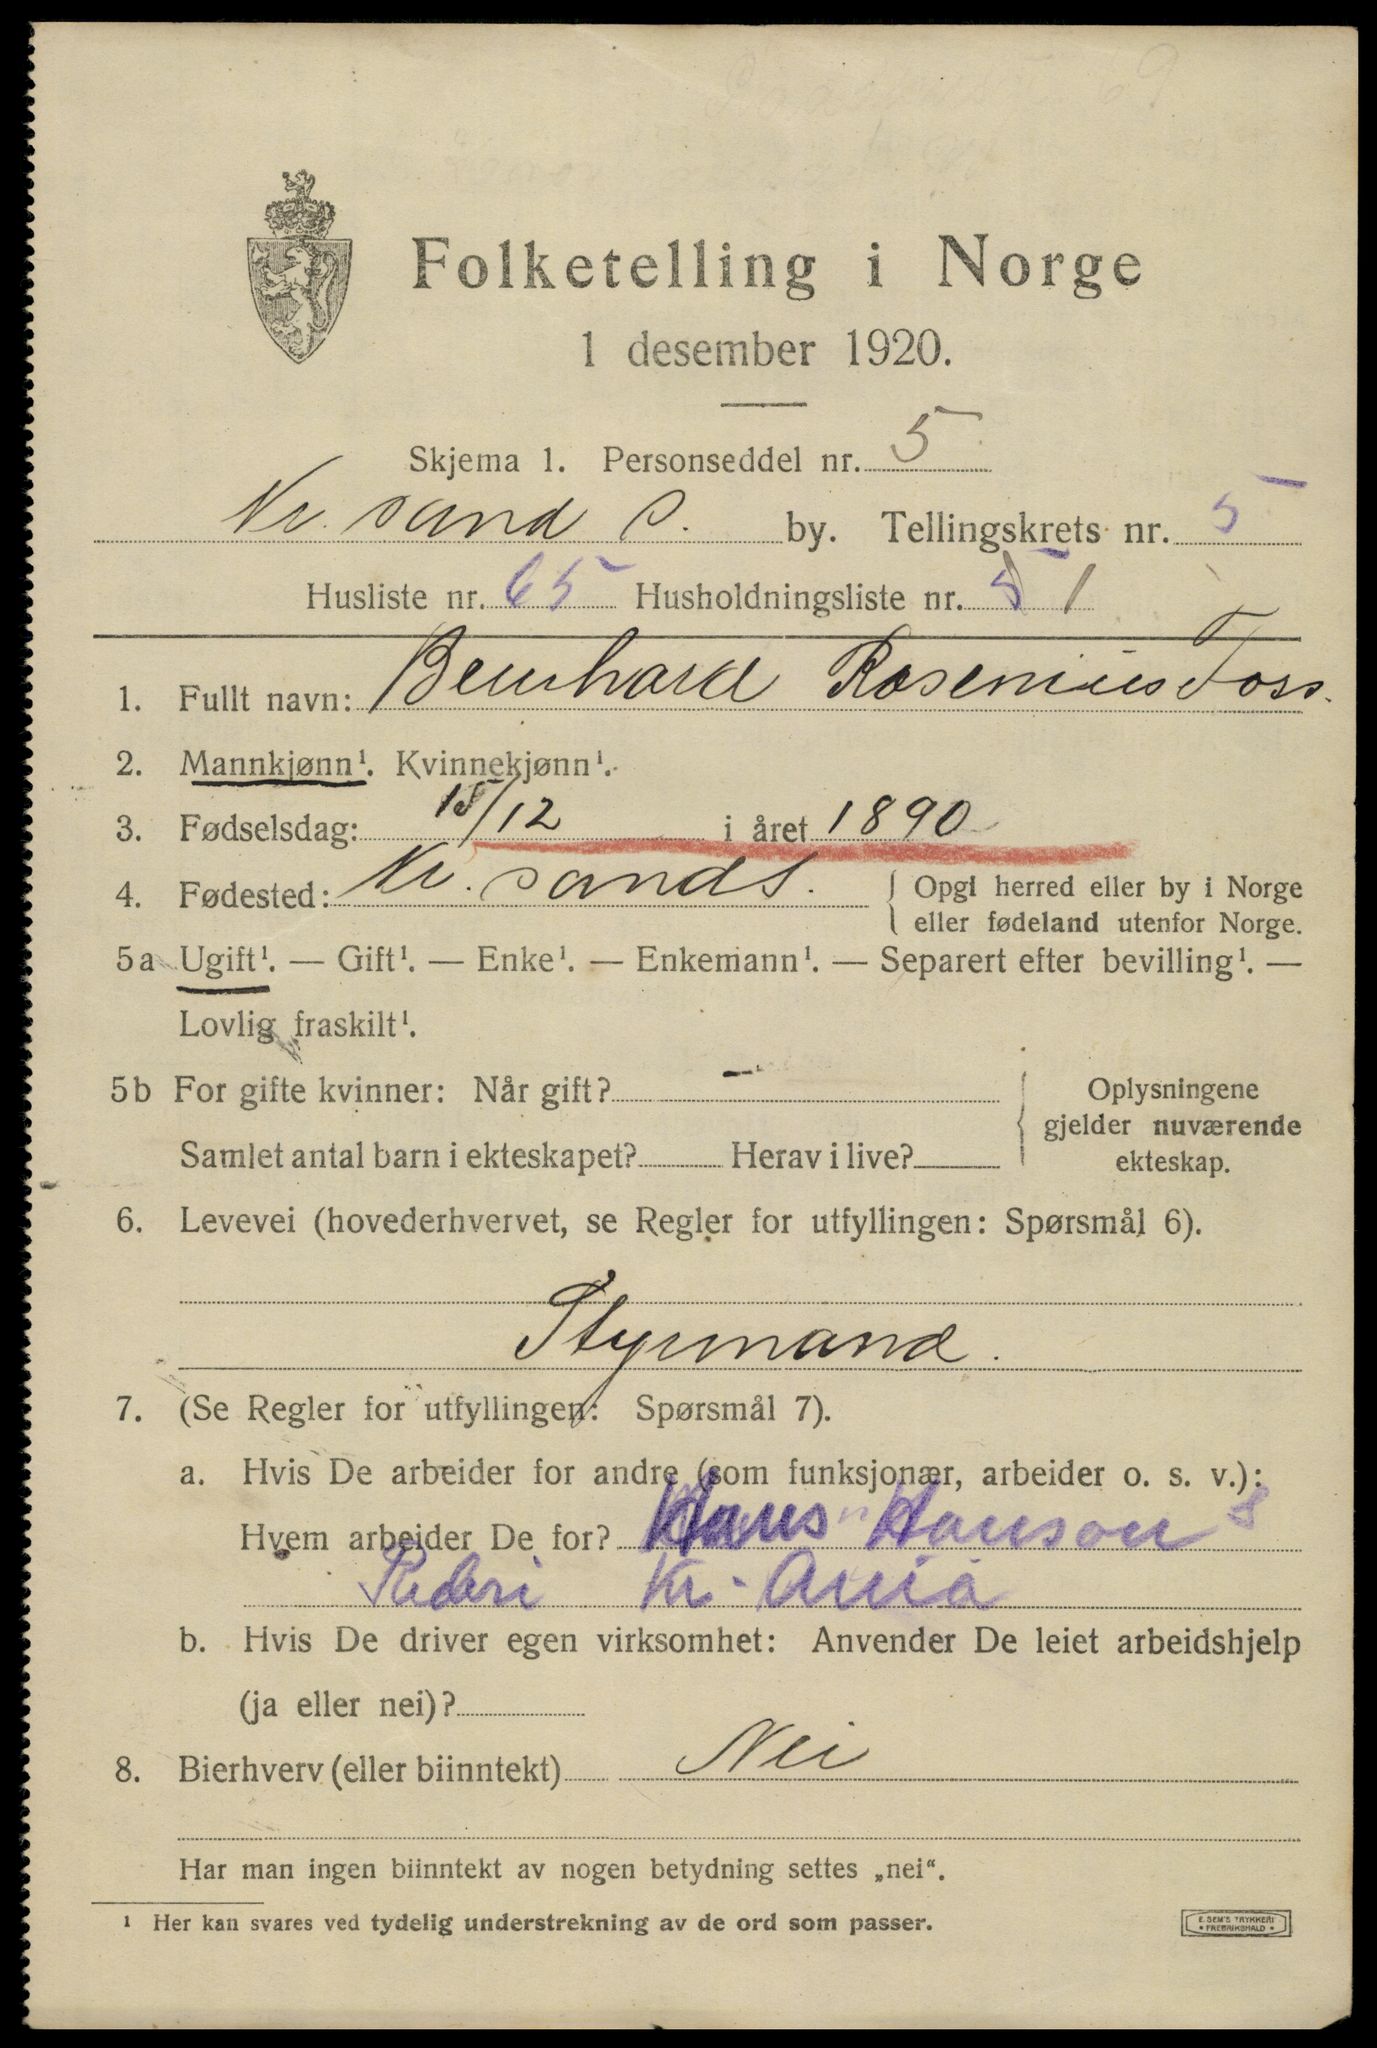 Folketelling i Norge
1 desember 1920.
Skjema 1. Personseddel nr. 5
Kr. sand S. by. Tellingskrets nr. 5
Husliste nr. 65 Husholdningsliste nr. 1
1. Fullt navn: Bernhard Rosenius Foss.
2. Mannkjønn¹. Kvinnekjønn¹.
3. Fødselsdag: 18/12 i året 1890
4. Fødested: Kr. sand S. { Opgi herred eller by i Norge
eller fødeland utenfor Norge.
5a Ugift¹. — Gift¹. — Enke¹. — Enkemann¹. — Separert efter bevilling¹. —
Lovlig fraskilt¹.
5b For gifte kvinner: Når gift? — { Oplysningene
gjelder nuværende
Samlet antal barn i ekteskapet? Herav i live? ekteskap.
6. Levevei (hovederhvervet, se Regler for utfyllingen: Spørsmål 6).
Styrmand.
7. (Se Regler for utfyllingen: Spørsmål 7).
a. Hvis De arbeider for andre (som funksjonær, arbeider o. s. v.):
Hvem arbeider De for? Klaus Hanson s
Rederi Kr. Ania
b. Hvis De driver egen virksomhet: Anvender De leiet arbeidshjelp
(ja eller nei)?
8. Bierhverv (eller biinntekt) Nei
Har man ingen biinntekt av nogen betydning settes „nei“.
¹ Her kan svares ved tydelig understrekning av de ord som passer.
E. SEM'S TRYKKERI
* FREDRIKSHALD *